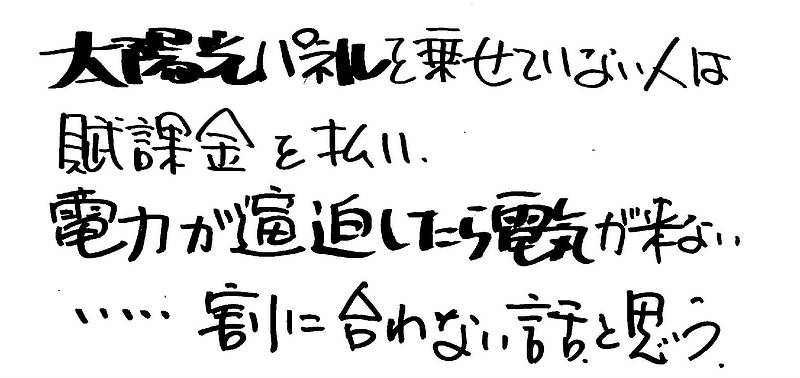 太陽光パネルを乗せていない人は
賦課金を払い.
電力が逼迫したら電気が来ない
‥‥‥割に合わない話と思う.